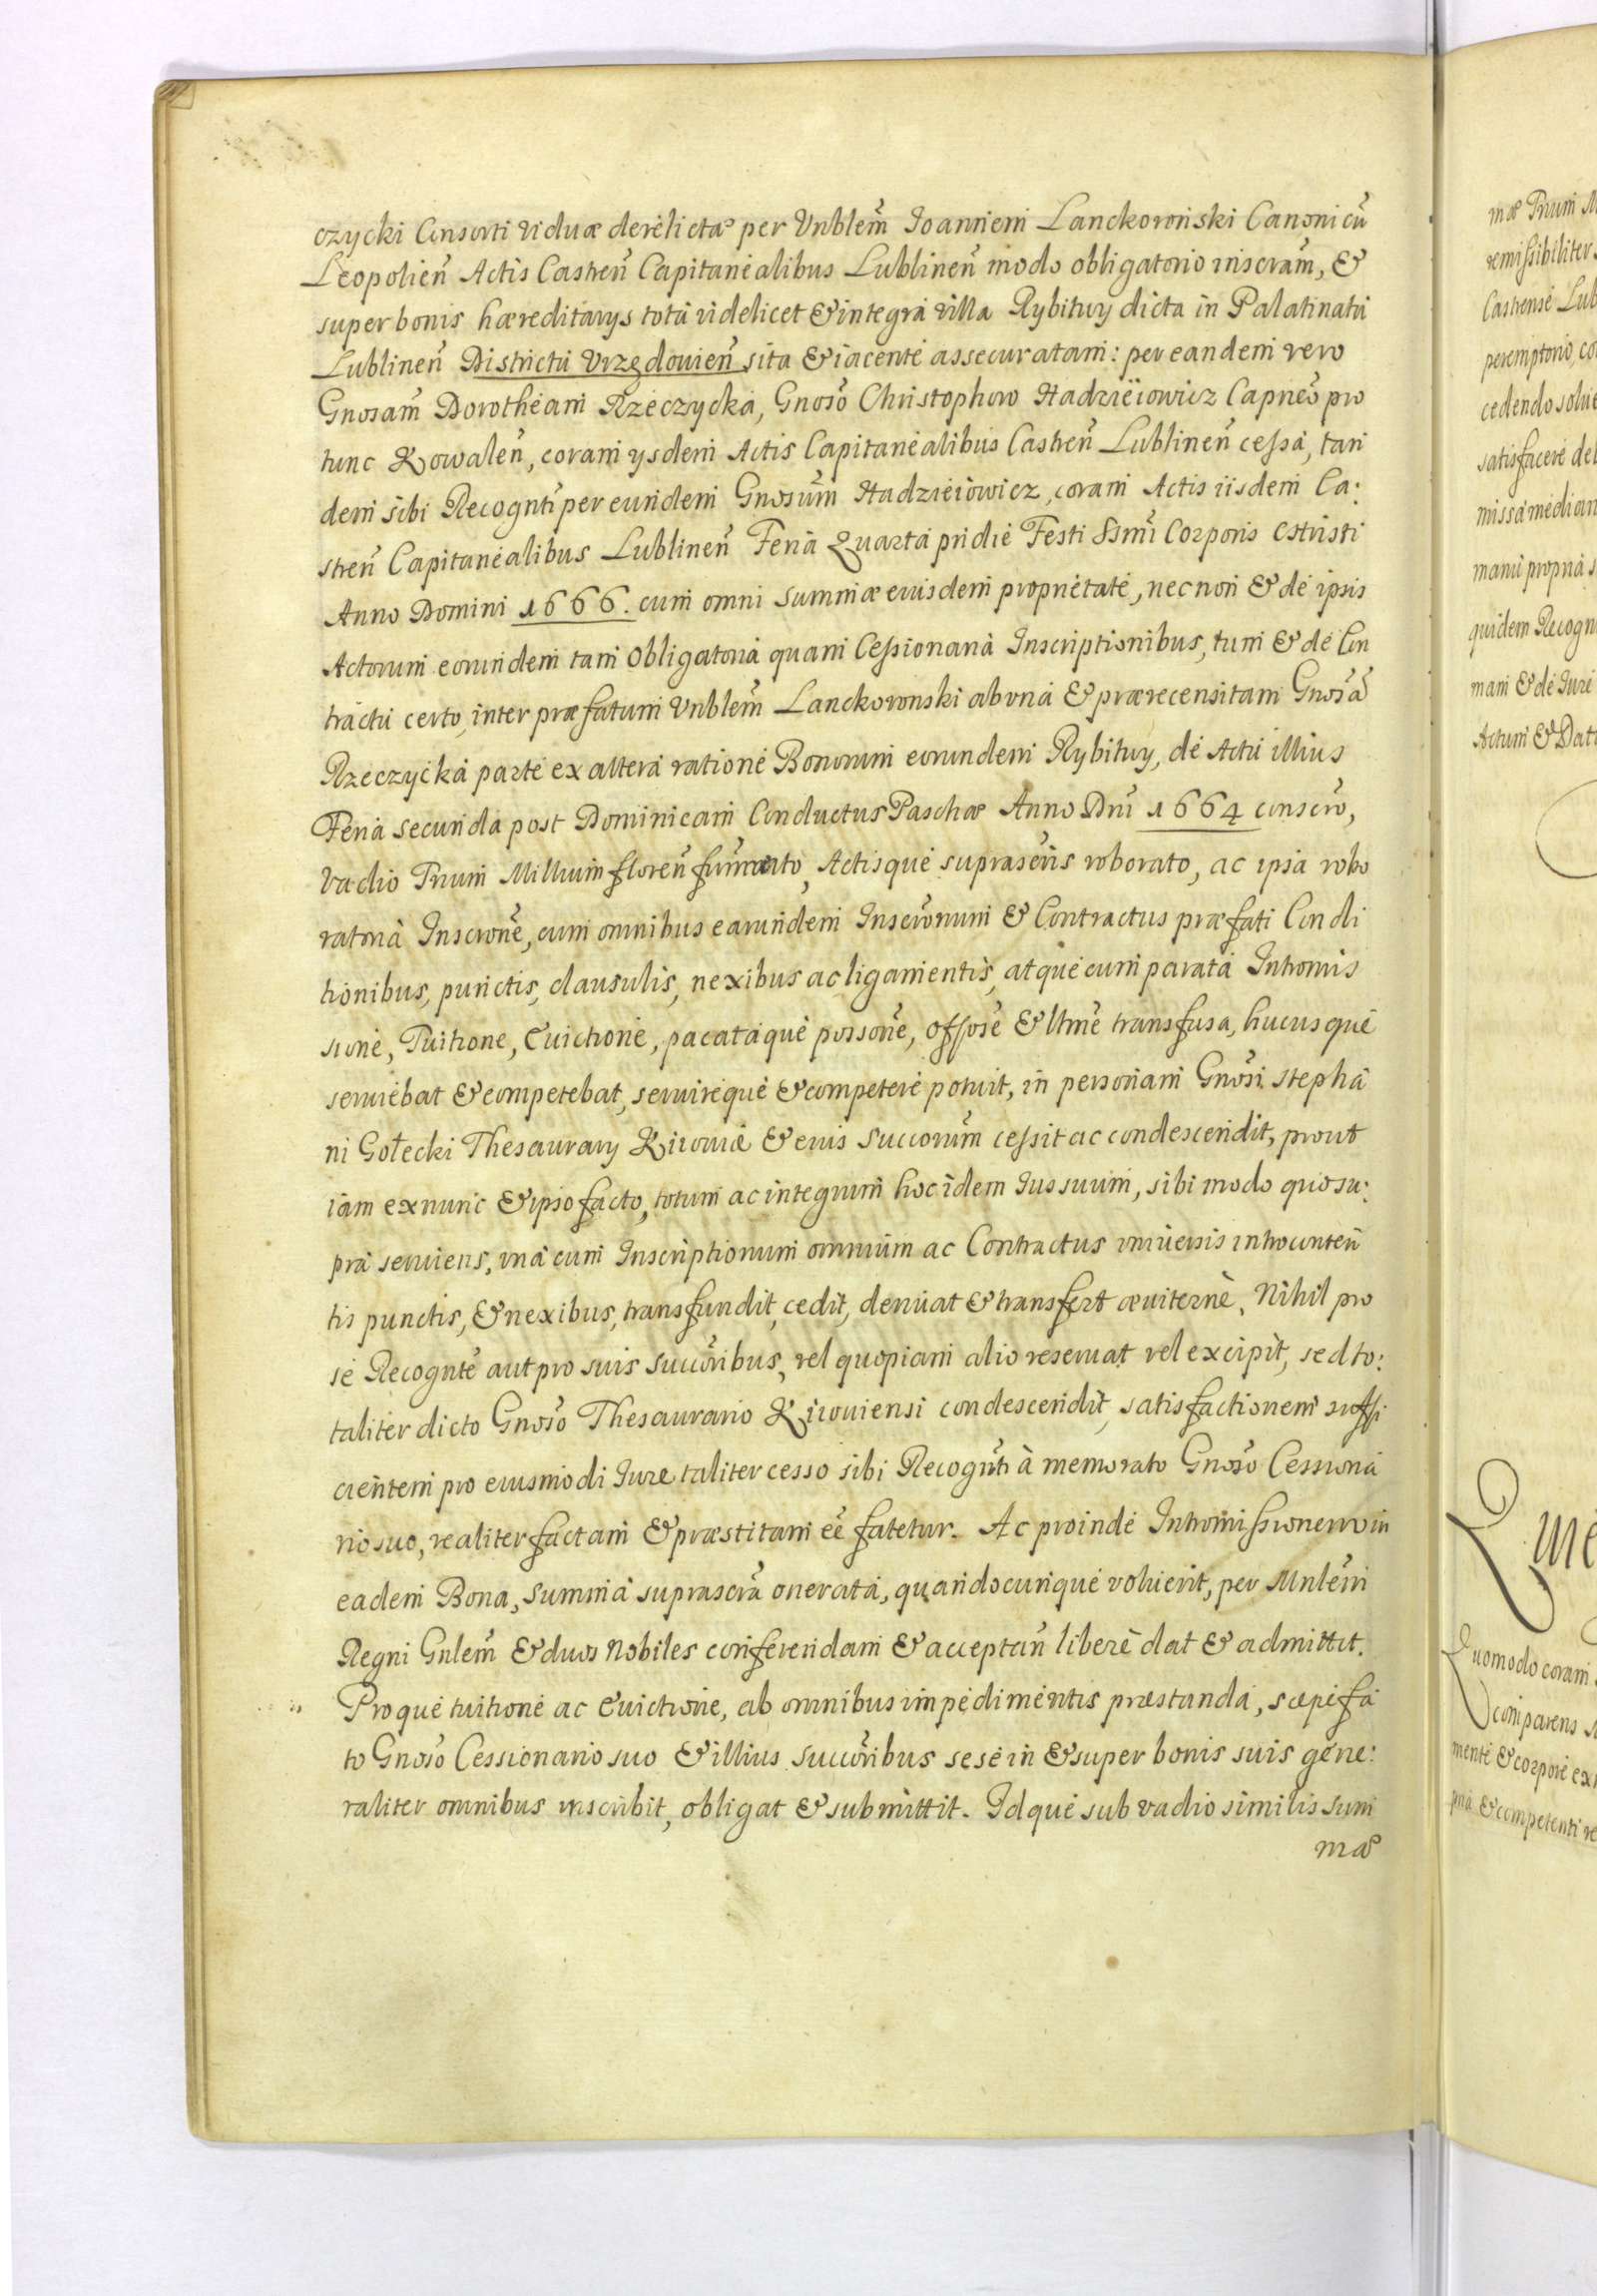 czycki Consorti viduæ derelictæ per Vnblem̃ Joannem Lanckoroński Canonicũ
Leopolien̄ Actis Castren̄ Capitanealibus Lublinen̄ modo obligatorio inscram̃, &
super bonis hæreditarys totâ videlicet & integrâ villa Rybitwy dicta in Palatinatû
Lublinen̄ Districtû Vrzędouien̄ sita & iacente assecuratam: per eandem vero
Gnosam̃ Dorotheam Rzeczycka, Gnoso̅ Christophoro Hadzieiowicz Capneo̅ pro
tunc Kowalen̄, coram ysdem Actis Capitanealibus Castren̄ Lublinen̄ cessâ, tan
dem sibi Recognti per eundem Gnosum̃ Hadzieiowicz coram Actis iisdem Ca:
stren̄ Capitanealibus Lublinen̄ Feriâ Quartâ pridie Festi SSmi Corporis Christi
Anno Domini 1666. cum omni summæ eiusdem proprietate, necnon & de ipsis
Actorum eorundem tam Obligatoriâ quam Cessionariâ Inscriptionibus, tum & de Con
tractû certo, inter præfatum Vnblem̃ Lanckoronski ab vnâ & prærecensitam Gnosã
Rzeczyckâ parte ex alterâ ratione Bonorum eorundem Rybitwy, de Actû illius
Feriâ secundâ post Dominicam Conductus Paschæ Anno Dni 1664 conscro,
Vadio Trium Millium floren̄ firmato, Actisque suprascris roborato, ac ipsâ robo
ratoriâ Inscrone, cum omnibus earundem Inscronum & Contractus præfati Condi
tionibus, punctis, clausulis, nexibus ac ligamentis, atque cum paratâ Intromis
sione, Tuitione, Euictione, pacatâque possone, offose & ltme transfusa, hucusque
seruiebat & competebat, seruireque & competere potuit, in personam Gnosi Stepha
ni Gołecki Thesaurary Kiiouiæ & eius Succorum cessit ac condescendit, prout
iam ex nunc & ipso facto, totum ac integrum hoc idem Ius suum, sibi modo quo su:
prâ seruiens, vnâ cum Inscriptionum omnium ac Contractus vniuersis introconten
tis punctis, & nexibus, transfundit, cedit, denuat & transfert æuiternè, Nihil pro
se Recognte aut pro suis succoribus, vel quopiam alio reseruat vel excipit, sed to:
taliter dicto Gnoso Thesaurario Kiiouiensi condescendit, satisfactionem suffi
cientem pro eiusmodi Iure taliter cesso sibi Recognti à memorato Gnoso Cessiona
rio suo, realiter factam & præstitam ee fatetur. Ac proinde Intromissionem in
eadem Bona, summâ suprascra oneratâ, quandocunque voluerit, per Mnlem
Regni Gnlem & duos Nobiles conferendam & acceptan̄ liberè dat & admittit.
Proque tuitione ac Euictione, ab omnibus impedimentis præstandâ, sæpefa
to Gnoso Cessionario suo & illius succoribus sese in & super bonis suis gene:
raliter omnibus inscribit, obligat & submittit. Idque sub vadio similis sum
mæ